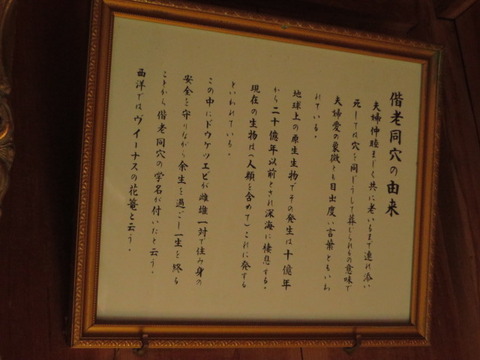 偕老同穴の由来
夫婦仲睦ましく共に老いるまで連れ添い
死しては穴を同どうして葬じられるの意味で
夫婦愛の象徴とも目出度い言葉ともいわ
れている。
地球上の原生生物でその発生は十億年
から二十億年以前とされ深海に棲息する。
現在の生物は(人類を含めて)これに発する
といわれている。
この中にドウケツエビが雌雄一対で住み身の
安全を守りながら余生を過ごし一生を終る
ことから偕老同穴の学名が付いたと云う。
西洋ではヴィーナスの花篭と云う。